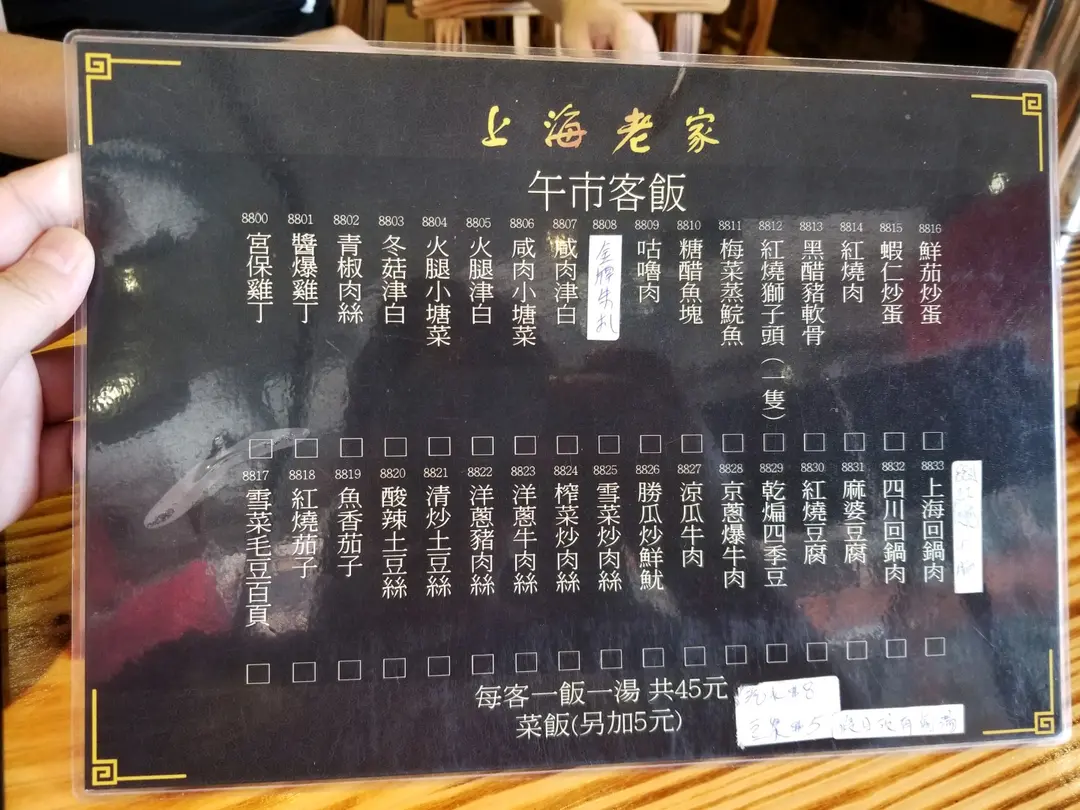 上海老家
午市客飯
8816 鮮茄炒蛋
8815 蝦仁炒蛋
8814 紅燒肉
8813 黑醋豬軟骨
8812 紅燒獅子頭（一隻）
8811 梅菜蒸鯇魚
8810 糖醋魚塊
8809 咕嚕肉
8808
8807 咸肉津白
8806 咸肉小塘菜
8805 火腿津白
8804 火腿小塘菜
8803 冬菇津白
8802 青椒肉絲
8801 醬爆雞丁
8800 宮保雞丁
8833 上海回鍋肉
8832 四川回鍋肉
8831 麻婆豆腐
8830 紅燒豆腐
8829 乾煸四季豆
8828 京蔥爆牛肉
8827 涼瓜牛肉
8826 勝瓜炒鮮魷
8825 雪菜炒肉絲
8824 榨菜炒肉絲
8823 洋蔥牛肉絲
8822 洋蔥豬肉絲
8821 清炒土豆絲
8820 酸辣土豆絲
8819 魚香茄子
8818 紅燒茄子
8817 雪菜毛豆百頁
每客一飯一湯 共45元
菜飯(另加5元)